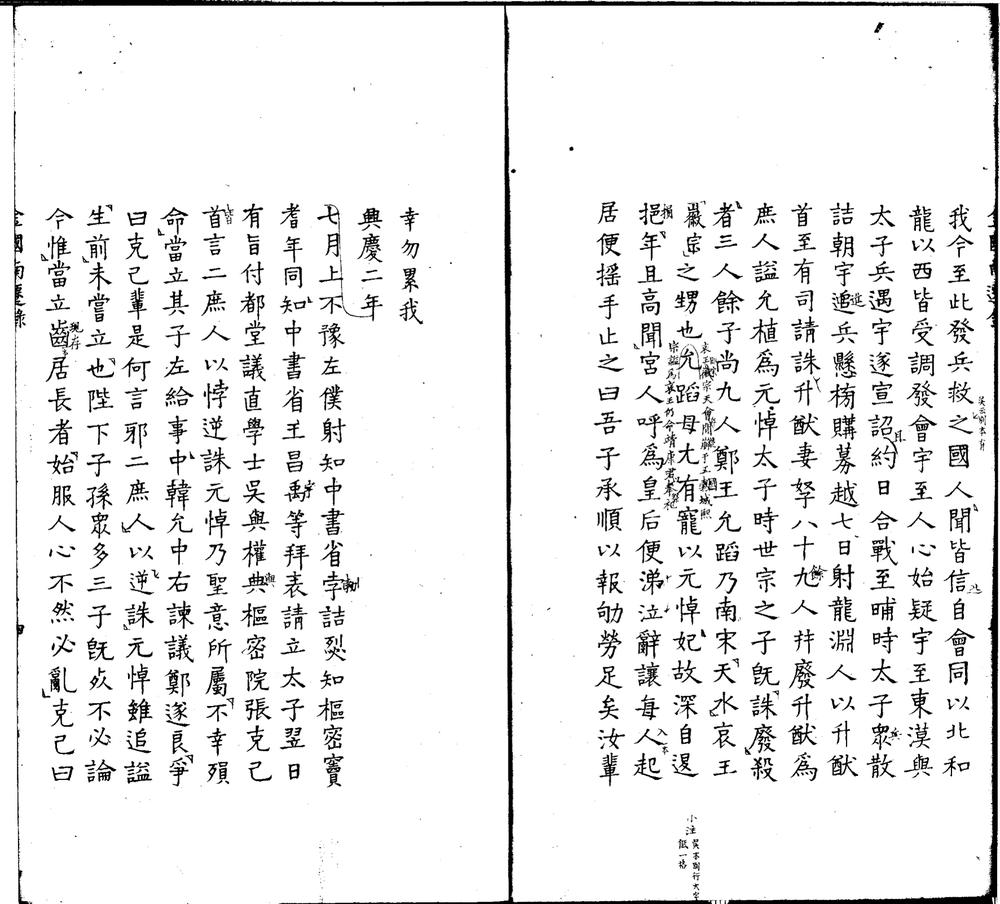 我今至此發兵救之國人聞皆信自會同以北和
龍以西皆受調發會宇至人心始疑宇至東漠與
太子兵遇宇遂宣詔約日合戰至晡時太子眾散
詰朝宇追兵懸榜購募越七日射龍淵人以升猷
首至有司請誅升猷妻孥八十九人并廢升猷爲
庶人謚允植爲元悼太子時世宗之子旣誅廢殺
者三人餘子尚九人鄭王允蹈乃南宋天水哀王
徽宗之甥也允蹈母尤有寵以元悼妃故深自退
挹年且高聞宮人呼爲皇后便涕泣辭讓每人起
居便摇手止之曰吾子承順以報劬勞足矣汝輩
小注吳本别行大字
低一格
幸勿累我
興慶二年
七月上不豫左僕射知中書省孛詰烈知樞密竇
耆年同知中書省王昌禹等拜表請立太子翌日
有旨付都堂議直學士吳與權典樞密院張克己
首言二庶人以悖逆誅元悼乃聖意所屬不幸殞
命當立其子左給事中韓允中右諫議鄭遂良爭
曰克己輩是何言邪二庶人以逆誅元悼雖追謚
生前未嘗立也陛下子孫眾多三子旣歿不必論
今惟當立齒居長者始服人心不然必亂克己曰
金國南遷錄
四